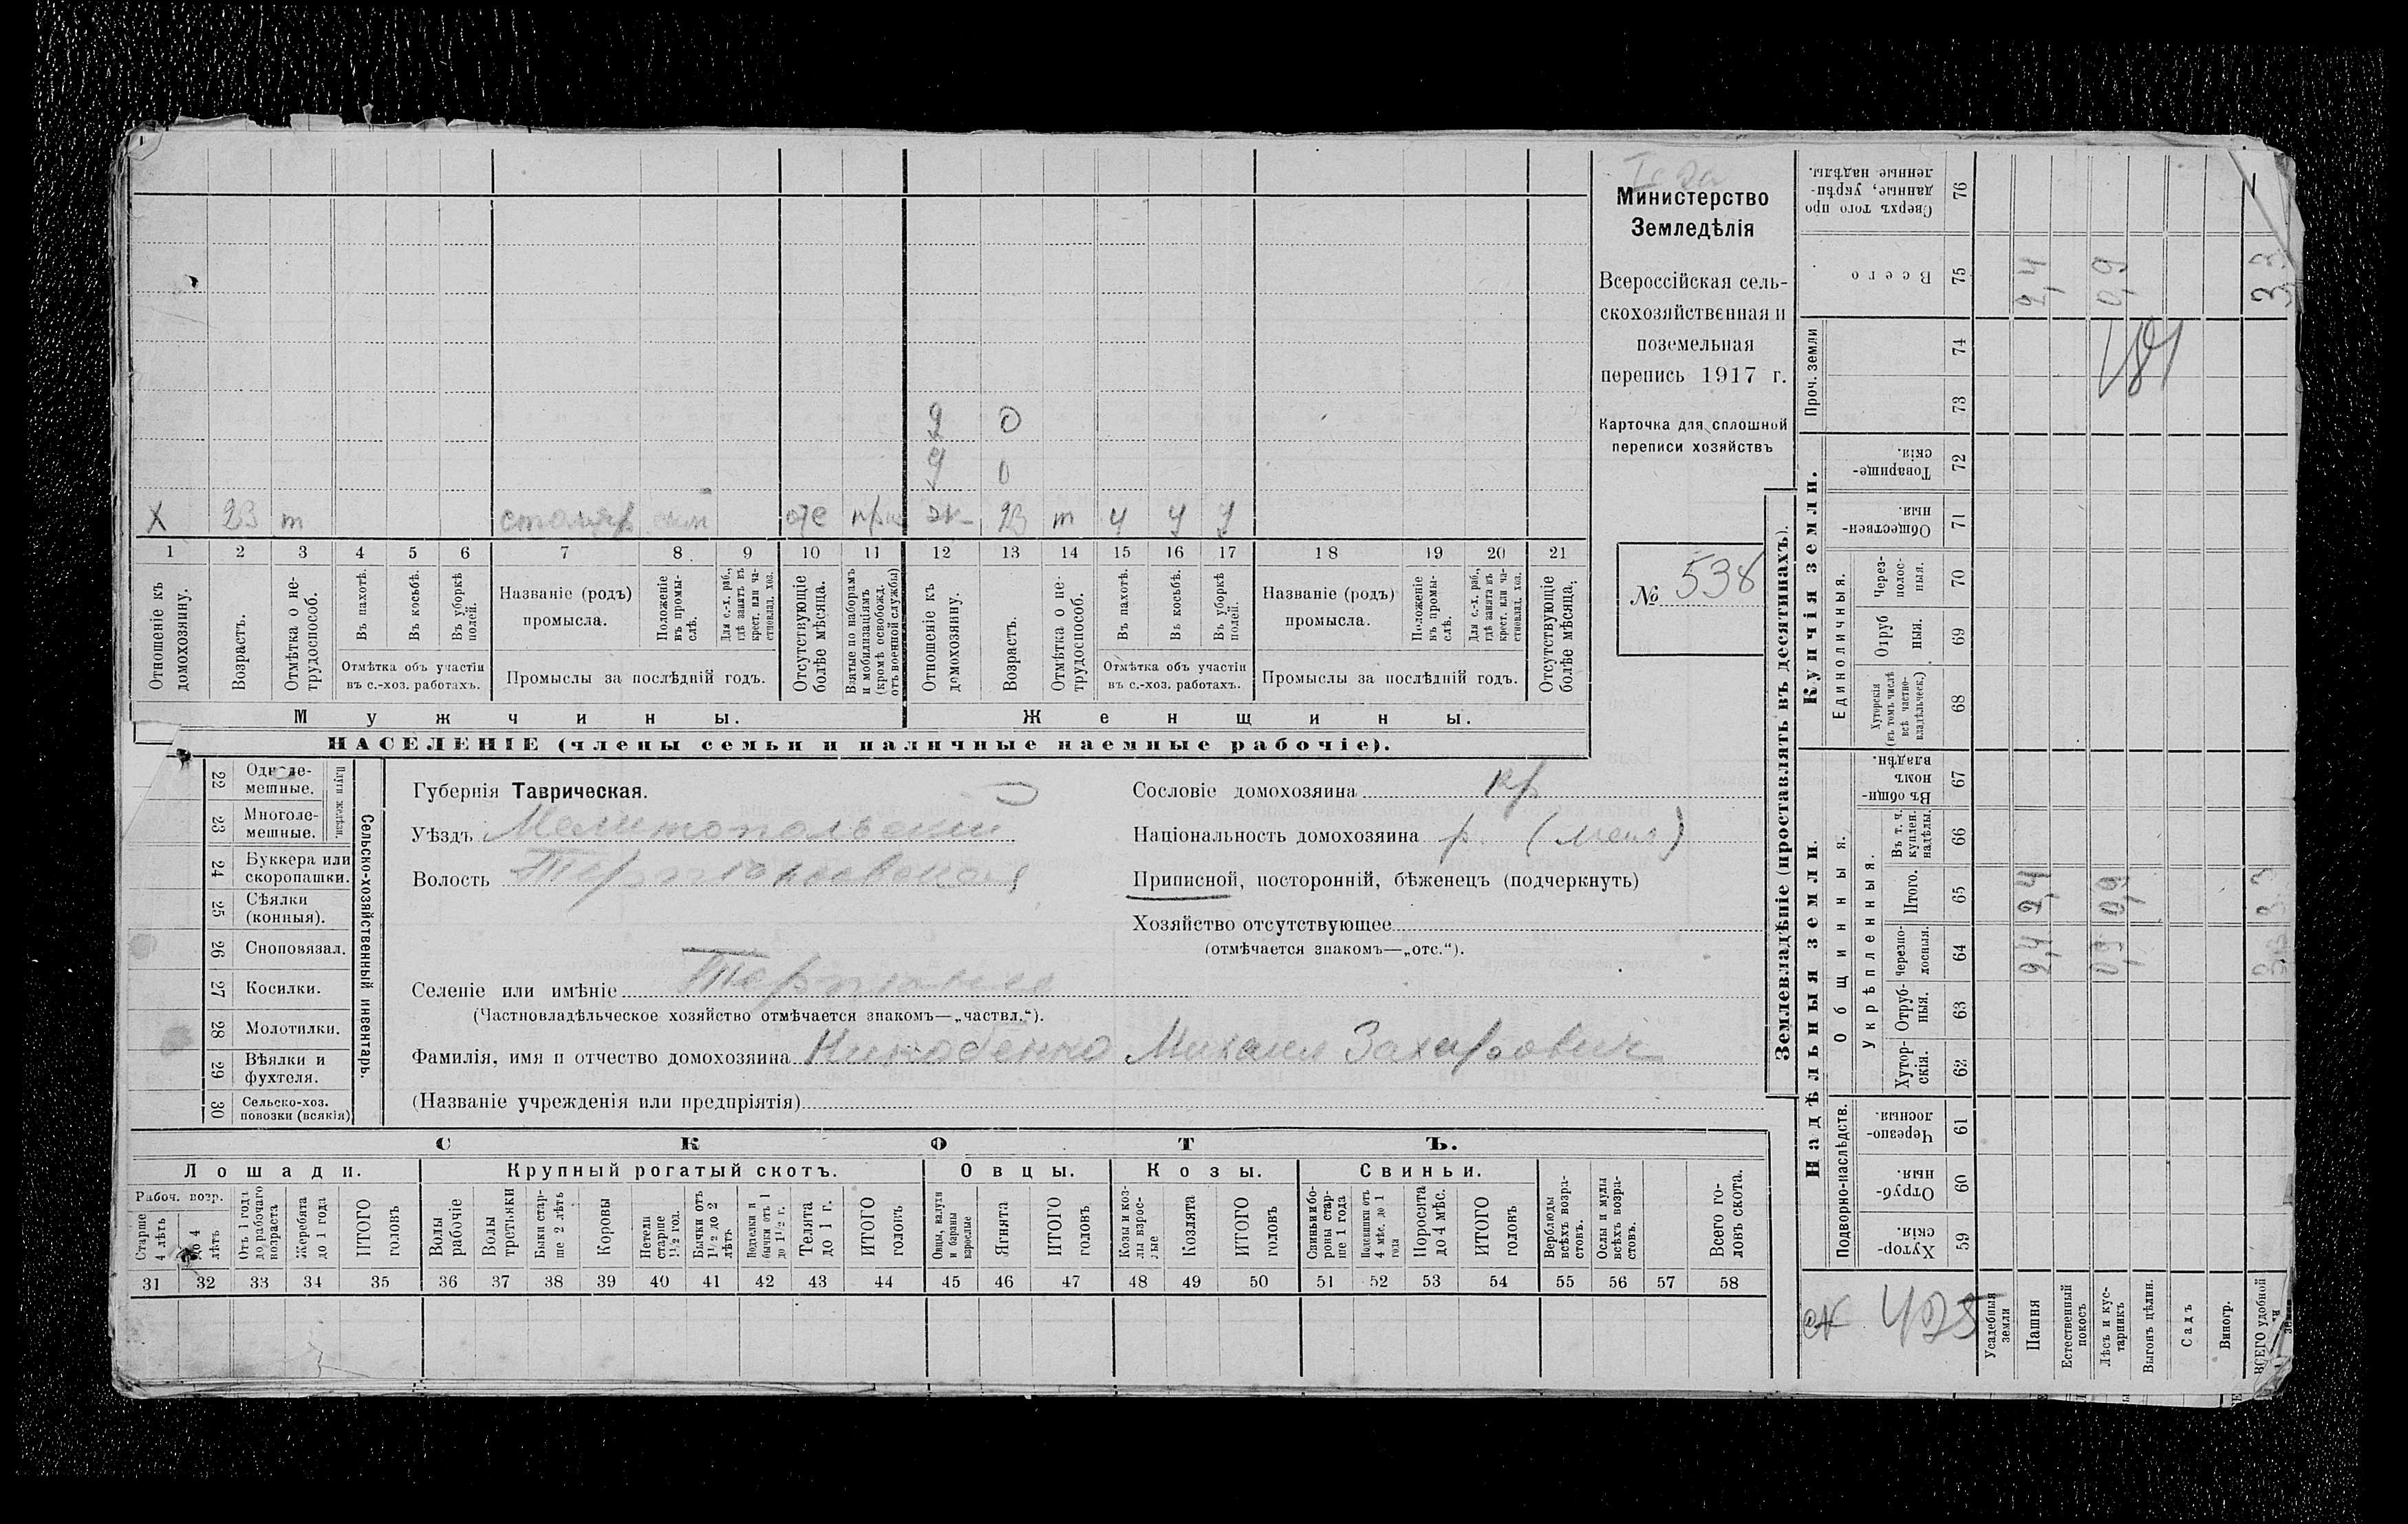 Министерство
Земледѣлія
Всероссійская сель-
скохозяйственная и
поземельная
перепись 1917 г.
Карточка для сплошной
переписи хозяйствъ
№ 538
9 0
9 0
X 23 т столяр 23 т у у у
1 2 3 4 5 6 7 8 9 10 11 12 13 14 15 16 17 18 19 20 21
Отношеніе къ домохозяину.
Возрастъ.
Отмѣтка о не-трудоспособ.
Въ пахотѣ.
Въ косьбѣ.
Въ уборкѣ полей.
Отмѣтка объ участіи
въ с.-хоз. работахъ.
Названіе (родъ)
промысла.
Положеніе въ промы-слѣ.
Для с.-х. раб., гдѣ занятъ въ крест. или ча-стновлад. хоз.
Промыслы за послѣдній годъ.
Отсутствующіе болѣе мѣсяца.
Взятые по наборамъ и мобилизаціямъ (кромѣ освобожд. отъ военной службы)
Отношеніе къ домохозяину.
Возрастъ.
Отмѣтка о не-трудоспособ.
Въ пахотѣ.
Въ косьбѣ.
Въ уборкѣ полей.
Отмѣтка объ участіи
въ с.-хоз. работахъ.
Названіе (родъ)
промысла.
Положеніе въ промы-слѣ.
Для с.-х. раб., гдѣ занята въ крест. или ча-стновлад. хоз.
Промыслы за послѣдній годъ.
Отсутствующіе болѣе мѣсяца.
Мужчины.
Женщины.
НАСЕЛЕНІЕ (члены семьи и наличные наемные рабочіе).
22 Одноле-мешные.
23 Многоле-мешные.
Плуги желѣзн.
24 Буккера или скоропашки.
25 Сѣялки (конныя).
26 Сноповязал.
27 Косилки.
28 Молотилки.
29 Вѣялки и фухтеля.
30 Сельско-хоз. повозки (всякія)
Сельско-хозяйственный инвентарь.
Губернія Таврическая.
Уѣздъ Мелитопольский
Волость Терпеньевская
Селеніе или имѣніе Терпенье
(Частновладѣльческое хозяйство отмѣчается знакомъ—„частвл.“).
Фамилія, имя и отчество домохозяина Никобенко Михаил Захарович
(Названіе учрежденія или предпріятія)
Сословіе домохозяина кр
Національность домохозяина р.
Приписной, посторонній, бѣженецъ (подчеркнуть)
Хозяйство отсутствующее
(отмѣчается знакомъ—„отс.“).
СКОТЪ.
Лошади. Крупный рогатый скотъ. Овцы. Козы. Свиньи.
Рабоч. возр.
Старше 4 лѣтъ
До 4 лѣтъ
Отъ 1 года до рабочаго возраста
Жеребята до 1 года
ИТОГО головъ
Волы рабочіе
Волы третьяки
Быки стар-ше 2 лѣтъ
Коровы
Нетели старше 1½ год.
Бычки отъ 1½ до 2 лѣтъ
Подтелки и бычки отъ 1 до 1½ г.
Телята до 1 г.
ИТОГО головъ
Овцы, валухи и бараны взрослые
Ягнята
ИТОГО головъ
Козы и коз-лы взрос-лые
Козлята
ИТОГО головъ
Свиньи и бо-ровы стар-ше 1 года
Подсвинки отъ 4 мѣс. до 1 года
Поросята до 4 мѣс.
ИТОГО головъ
Верблюды всѣхъ возра-стовъ.
Ослы и мулы всѣхъ возра-стовъ.
Всего го-ловъ скота.
31 32 33 34 35 36 37 38 39 40 41 42 43 44 45 46 47 48 49 50 51 52 53 54 55 56 57 58
Землевладѣніе (проставлять въ десятинахъ).
Надѣльныя земли.
Купчія земли.
Подворно-наслѣдств.
Общинныя.
Укрѣпленныя.
Единоличныя.
Проч. земли
Хутор-скія. 59
Отруб-ныя. 60
Черезпо-лосныя. 61
Хутор-скія. 62
Отруб-ныя. 63
Черезпо-лосныя. 64 2,4 0,9 3,3
Итого. 65 2,4 0,9 3,3
Въ т. ч. куплен. надѣлы. 66
Въ общин-номъ владѣн. 67
Хуторскія (въ томъ числѣ всѣ частно-владѣльческ.) 68
Отруб ныя. 69
Через-полос-ныя. 70
Обществен-ныя. 71
Товарище-скія. 72
73
74
Всего 75 2,4 0,9 3,3
Сверхъ того про данные, укрѣп-ленные надѣлы. 76
425
Усадебныя земли
Пашня
Естественный покосъ
Лѣсъ и кус-тарникъ
Выгонъ цѣлин.
Садъ
Виногр.
ВСЕГО удобной